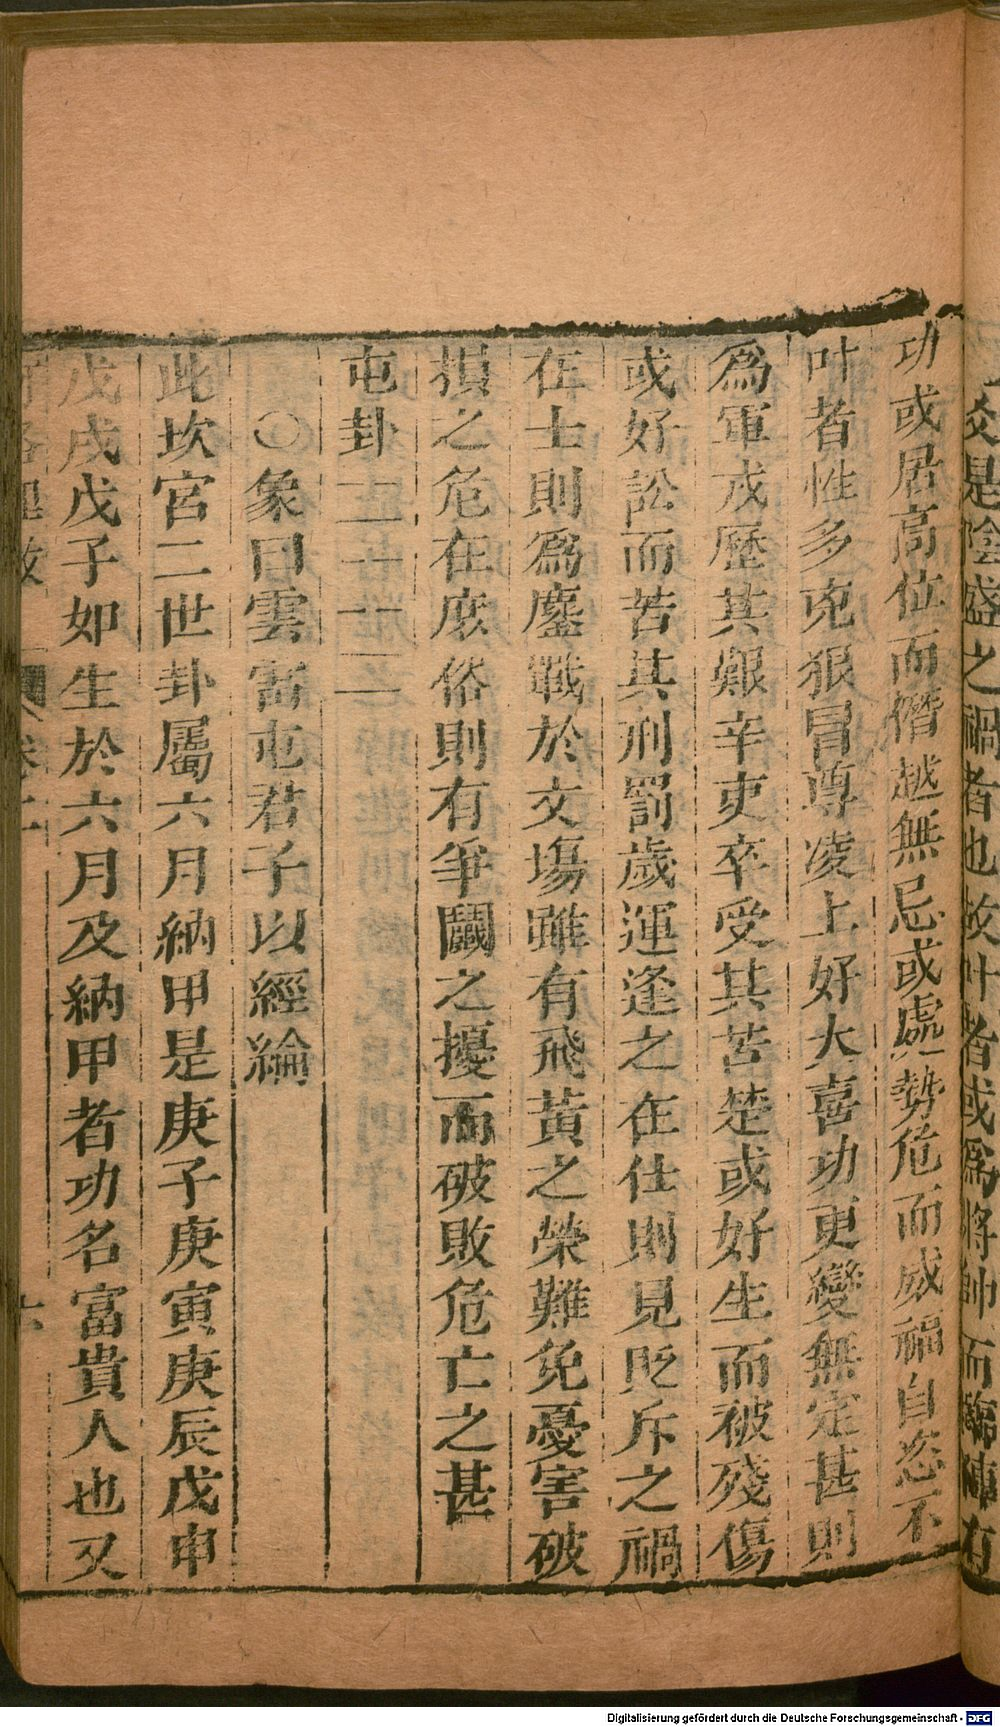 爻是陰盛之禍者也故叶者或爲將帥而臨陣有
功或居高位而僭越無忌或處勢危而威福自恣不
叶者性多兇狠冒尊凌上好大喜功更變無定甚則
爲軍戎歷其艱辛吏卒受其苦楚或好生而被殘傷
或好訟而苦其刑罰歲運逢之在仕則見貶斥之禍
在士則爲鏖戰於文場雖有飛黃之榮難免憂害破
損之危在庶俗則有爭鬭之擾而破敗危亡之甚
屯卦
○象曰雲雷屯君子以經綸
此坎宮二世卦屬六月納甲是庚子庚寅庚辰戊申
戊戌戊子如生於六月及納甲者功名富貴人也又
卷二 六
Digitalisierung gefördert durch die Deutsche Forschungsgemeinschaft - DFG